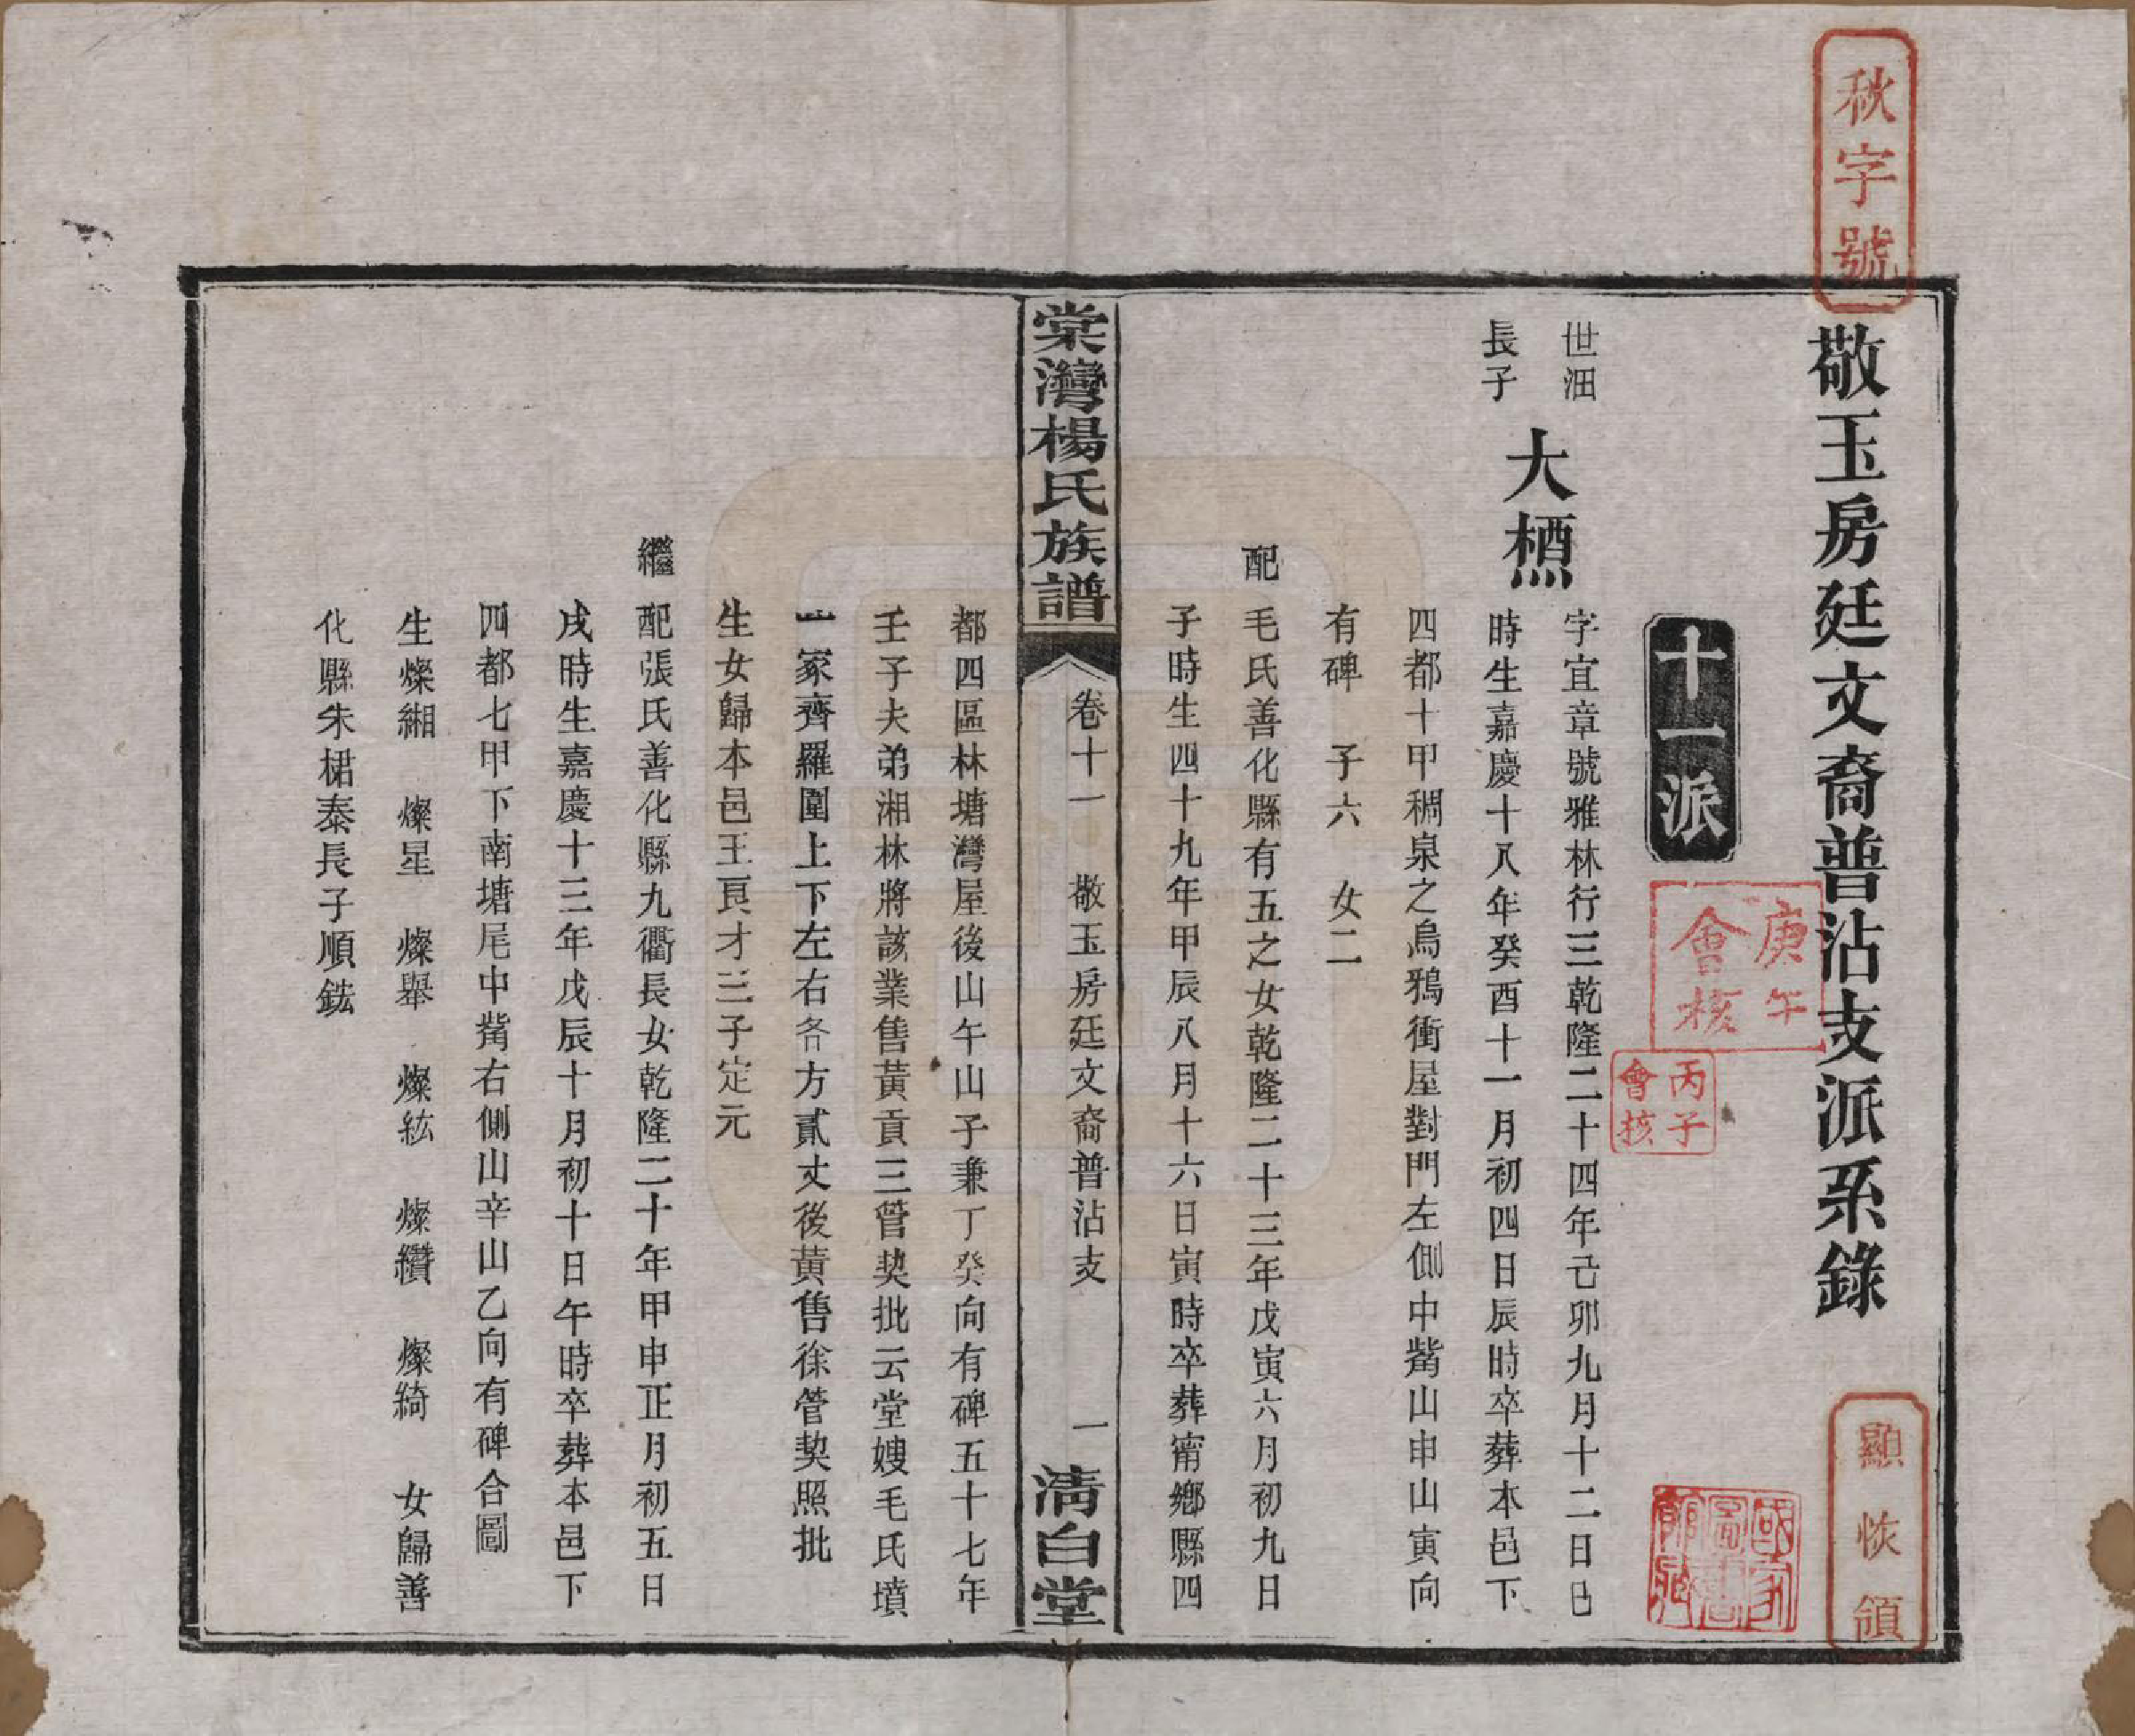 秋字號
敬玉房廷文裔普沾支派系錄
顯恢領
十一派
庚午會核
丙子會核
國家圖書館藏
世沺
長子
大槱
字宜章號雅林行三乾隆二十四年己卯九月十二日巳
時生嘉慶十八年癸酉十一月初四日辰時卒葬本邑下
四都十甲稠泉之烏鴉衝屋對門左側中觜山申山寅向
有碑 子六 女二
配毛氏善化縣有五之女乾隆二十三年戊寅六月初九日
子時生四十九年甲辰八月十六日寅時卒葬甯鄉縣四
棠灣楊氏族譜
卷十一 敬玉房廷文裔普沾支 一
清白堂
都四區林塘灣屋後山午山子兼丁癸向有碑五十七年
壬子夫弟湘林將該業售黃貢三管契批云堂嫂毛氏墳
一冢齊羅圍上下左右各方貳丈後黃售徐管契照批
生女歸本邑王頁才三子定元
繼配張氏善化縣九衢長女乾隆二十年甲申正月初五日
戌時生嘉慶十三年戊辰十月初十日午時卒葬本邑下
四都七甲下南塘尾中觜右側山辛山乙向有碑合圖
生燦緗 燦星 燦舉 燦紘 燦纘 燦綺 女歸善
化縣朱桾泰長子順鋕